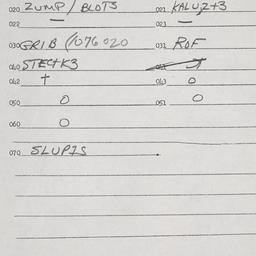 020 ZUMP / BLOTS 021 KALUZ+3
022 — 023 —
030 GRIB (1076020 031 ROF
040 STECHK3
042 † 043 O
050 O 051 O
060 O
070 SLUPIS